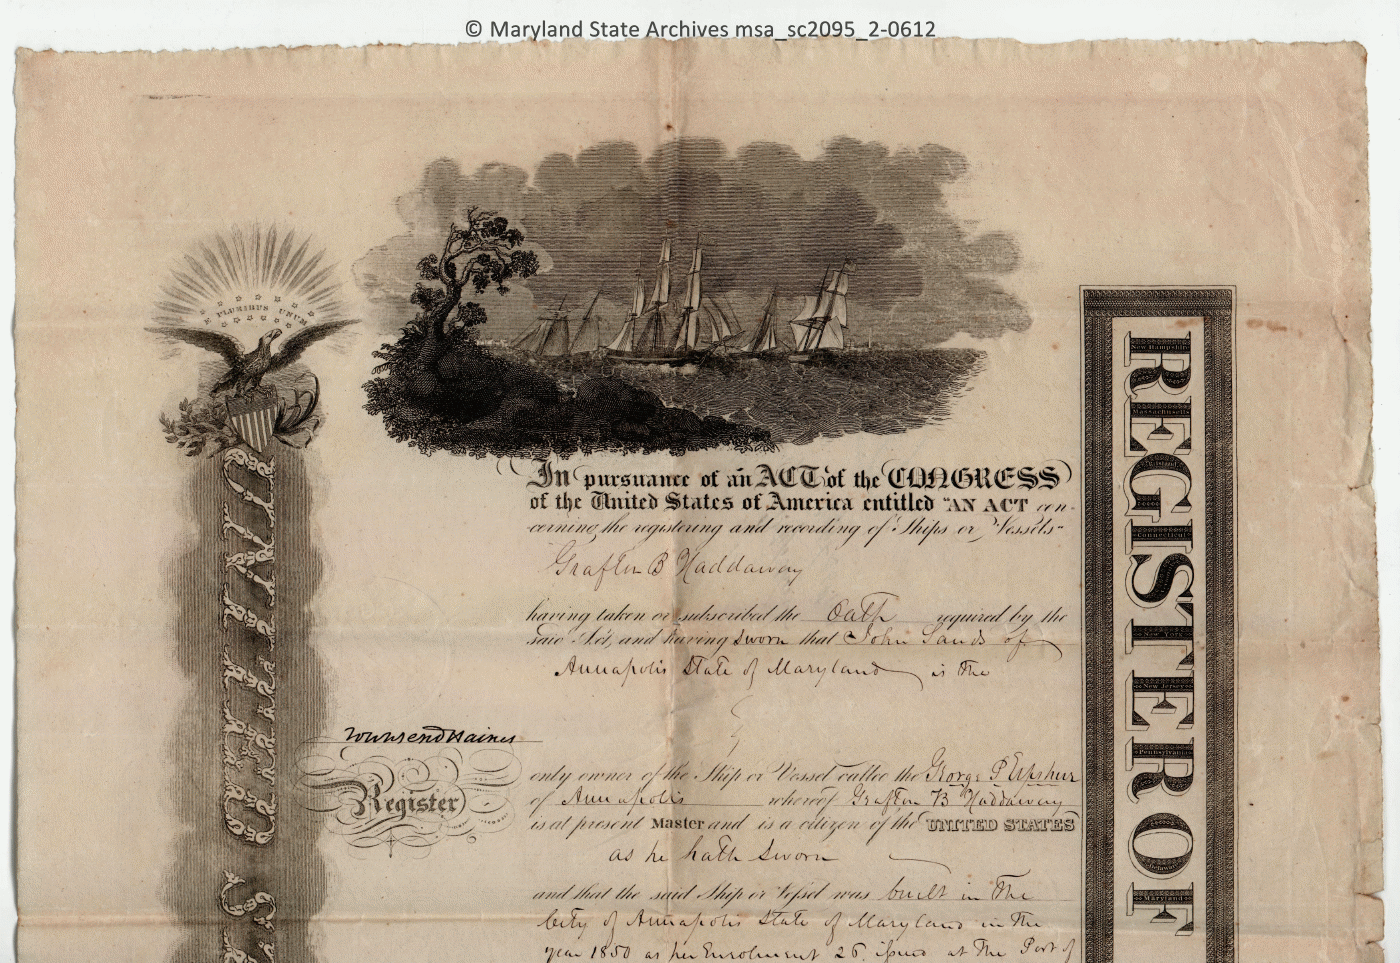 © Maryland State Archives msa_sc2095_2-0612
E PLURIBUS UNUM
In pursuance of an ACT of the CONGRESS
of the United States of America entitled "AN ACT con-
cerning the registering and recording of Ships or Vessels"
Grafton B Haddaway
having taken or subscribed the Oath required by the
said Act, and having sworn that John Sands of
Annapolis State of Maryland is the
Townsend Haines
Register
only owner of the Ship or Vessel called the George P Upshur
of Annapolis whereof Grafton B Haddaway
is at present Master and is a citizen of the UNITED STATES
as he hath sworn
and that the said Ship or Vessel was built in the
City of Annapolis State of Maryland in the
year 1850 as per Enrolment 26 issued at the Port of
UNITED S
REGISTER OF
New Hampshire
Massachusetts
R. Island
Connecticut
New York
New Jersey
Pennsylvania
Delaware
Maryland